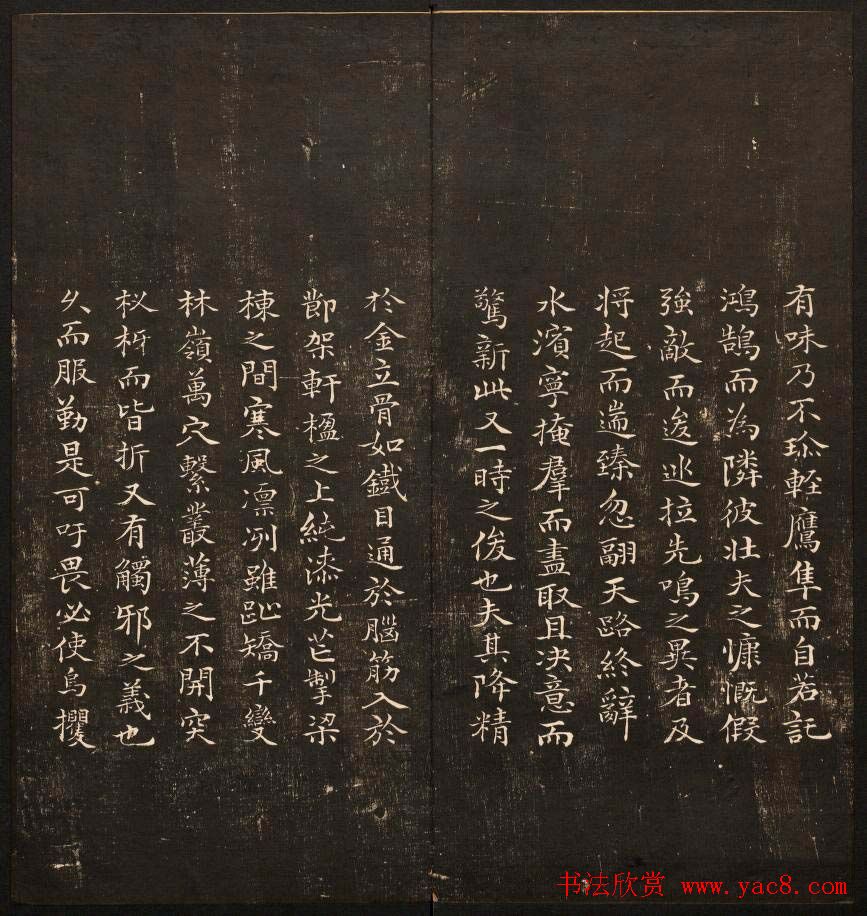 有味乃不珎輕鷹隼而自若託
鴻鵠而為隣彼壯夫之慷慨假
強敵而逡巡拉先鳴之異者及
将起而遄臻忽翮天路終辭
水濱寧掩羣而盡取且决意而
驚新此又一時之俊也夫其降精
於金立骨如鐵目通於腦筋入於
節架軒楹之上純漆光芒掣梁
棟之間寒風凛冽雖趾矯千變
林嶺萬穴繫叢薄之不開突
杈枒而皆折又有觸邪之義也
久而服勤是可吁畏必使烏攫
书法欣赏 www.yac8.com